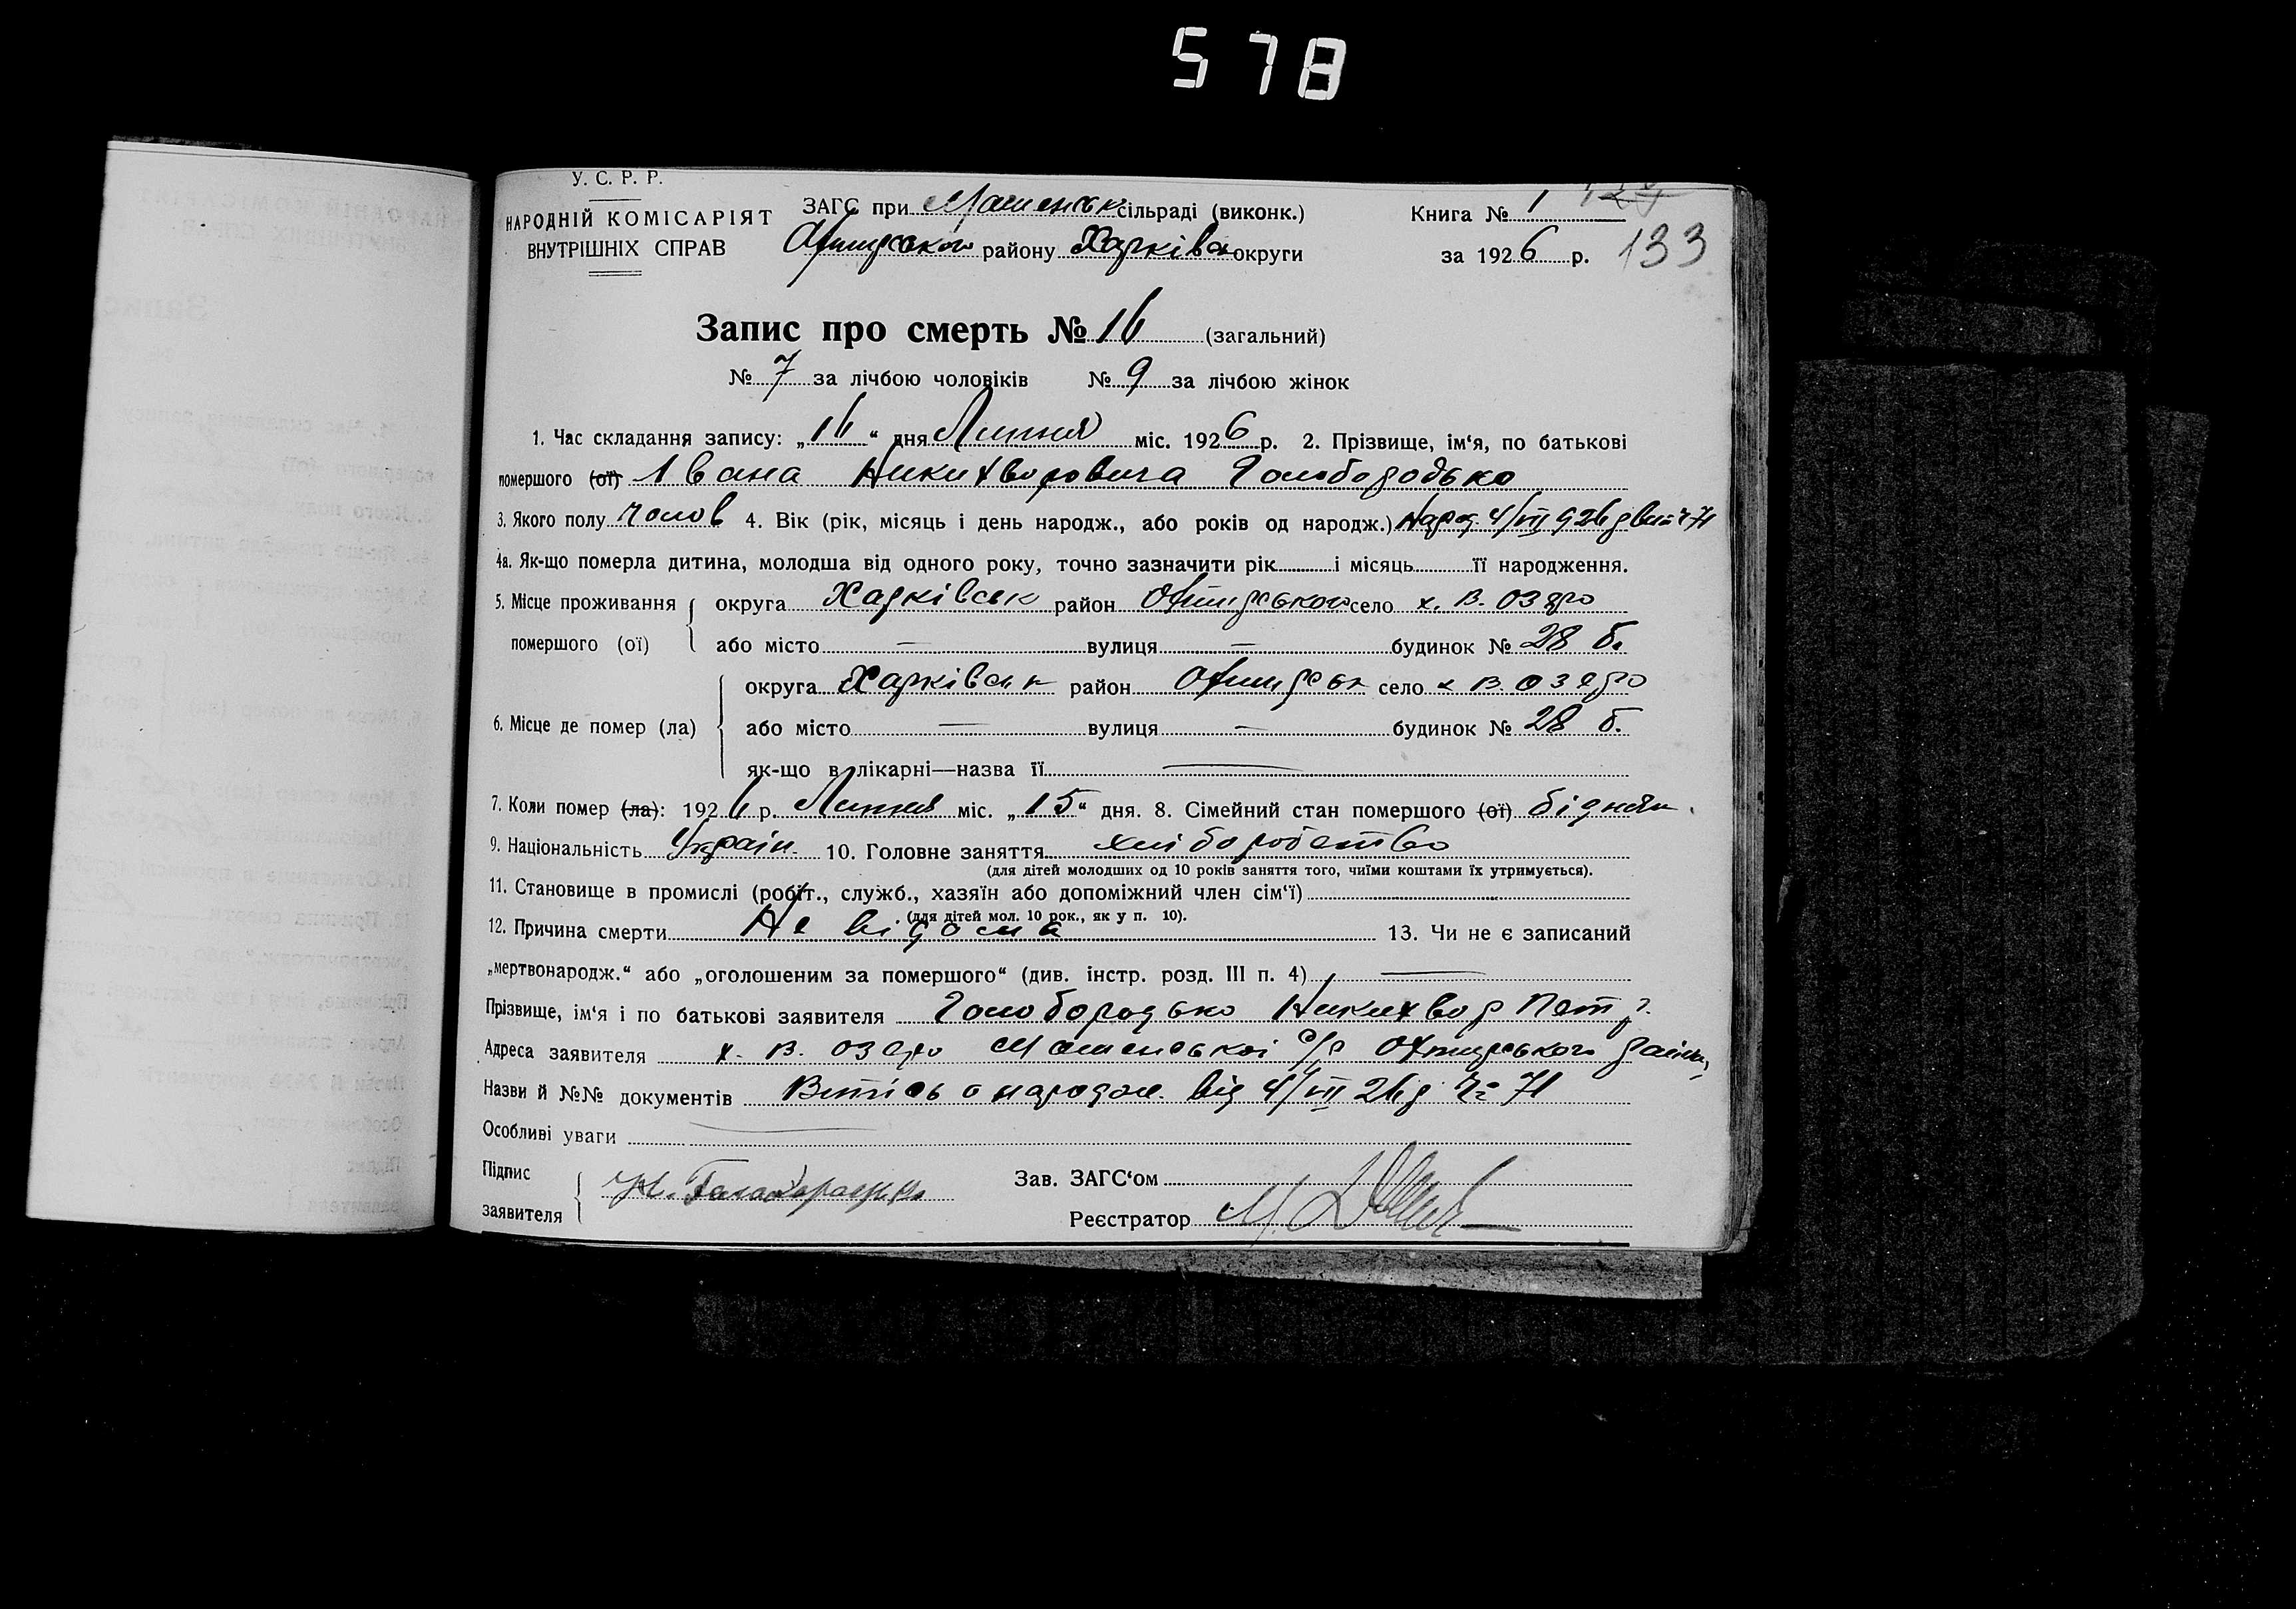 578
У. С. Р. Р.
НАРОДНІЙ КОМІСАРІЯТ
ВНУТРІШНІХ СПРАВ
ЗАГС при Машенськ сільраді (виконк.)
Охтирського району Харківськ округи
Книга № 1
за 1926 р. 133
Запис про смерть № 16 (загальний)
№ 7 за лічбою чоловіків № 9 за лічбою жінок
1. Час складання запису: „16“ дня Липня міс. 1926 р. 2. Прізвище, ім‘я, по батькові
помершого (ої) Івана Никихворовича Голобородько
3. Якого полу чолов 4. Вік (рік, місяць і день народж., або років од народж.) Народ. 4/VII 926 р 71
4а. Як-що померла дитина, молодша від одного року, точно зазначити рік і місяць її народження.
5. Місце проживання помершого (ої) округа Харківськ район Охтирського село х. В. Озеро
або місто — вулиця — будинок № 28 б.
6. Місце де помер (ла) округа Харківськ район Охтирськ село х В. Озеро
або місто — вулиця — будинок № 28 б.
як-що в лікарні—назва її —
7. Коли помер (ла): 1926 р. Липня міс. „15“ дня. 8. Сімейний стан помершого (ої) бідняк.
9. Національність Україн. 10. Головне заняття хліборобство
(для дітей молодших од 10 років заняття того, чиїми коштами їх утримується).
11. Становище в промислі (робіт., служб., хазяїн або допоміжний член сім‘ї)
(для дітей мол. 10 рок., як у п. 10).
12. Причина смерти Не відома 13. Чи не є записаний
„мертвонародж.“ або „оголошеним за помершого“ (див. інстр. розд. III п. 4) —
Прізвище, ім‘я і по батькові заявителя Голобородько Никихвор Петр.
Адреса заявителя х. В. Озеро Машенської с/р Охтирського району
Назви й №№ документів Витісь о народж. від 4/VII 26 р № 71
Особливі уваги —
Підпис заявителя Н. Галабарадько
Зав. ЗАГС‘ом
Реєстратор М.